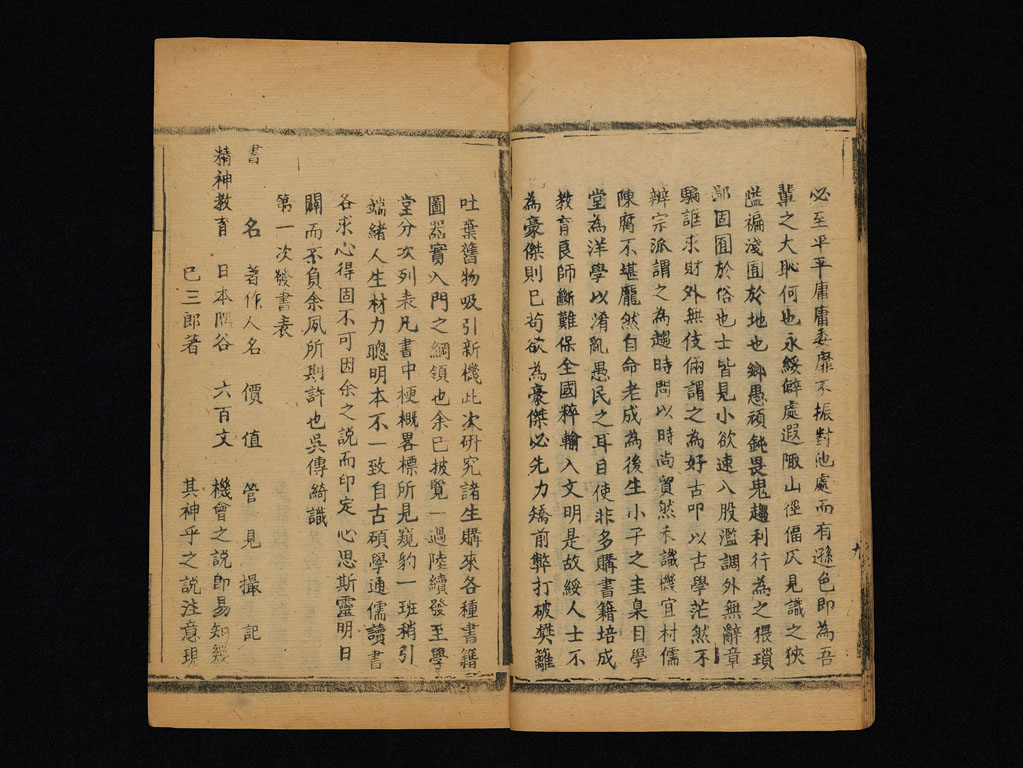 必至平平庸庸委靡不振對他處而有遜色即為吾
輩之大恥何也永綏僻處遐陬山徑偪仄見識之狹
隘褊淺囿於地也鄉愚頑鈍畏鬼趨利行為之猥瑣
鄙固囿於俗也士皆見小欲速八股濫調外無辭章
騙誑求財外無伎倆謂之為好古叩以古學茫然不
辨宗派謂之為趨時問以時尚貿然未識機宜村儒
陳腐不堪龐然自命老成為後生小子之圭臬目學
堂為洋學以淆亂愚民之耳目使非多購書籍培成
教育良師斷難保全國粹輸入文明是故綏人士不
為豪傑則已苟欲為豪傑必先力矯前弊打破樊籬
九
吐棄舊物吸引新機此次研究諸生購來各種書籍
圖器實入門之綱領也余已披覽一過陸續發至學
堂分次列表凡書中梗概畧標所見窺豹一班稍引
端緒人生材力聰明本不一致自古碩學通儒讀書
各求心得固不可因余之說而印定心思斯靈明日
闢而不負余夙所期許也吳傳綺識
第一次發書表
書名 著作人名 價值 管見撮記
精神教育 日本隈谷 六百文 機會之說即易知幾
巳三郎著 其神乎之說注意現